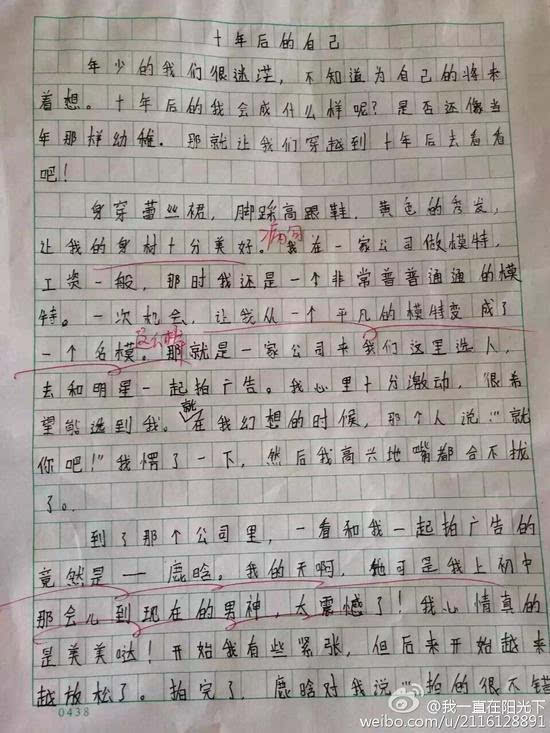 十年后的自己
年少的我们很迷茫，不知道为自己的将来
着想。十年后的我会成什么样呢？是否还像当
年那样幼稚．那就让我们穿越到十年后去看看
吧！
身穿蕾丝裙，脚踩高跟鞋，黄色的秀发，
病句
让我的身材十分美好。我在一家公司做模特，
工资一般，那时我还是一个非常普普通通的模
特。一次机会，让我从一个平凡的模特变成了
一个名模。那就是一家公司来我们这里选人，
去和明星一起拍广告。我心里十分激动，很希
望能选到我。就在我幻想的时候，那个人说：“就
你吧！”我愣了一下，然后我高兴地嘴都合不拢
了。
到了那个公司里，一看和我一起拍广告的
竟然是——鹿晗。我的天啊，他可是我上初中
那会儿到现在的男神，太震憾了！我心情真的
是美美哒！开始我有些紧张，但后来开始越来
越放松了。拍完了，鹿晗对我说：“拍的很不错
0438
@我一直在阳光下
weibo.com/u/2116128891